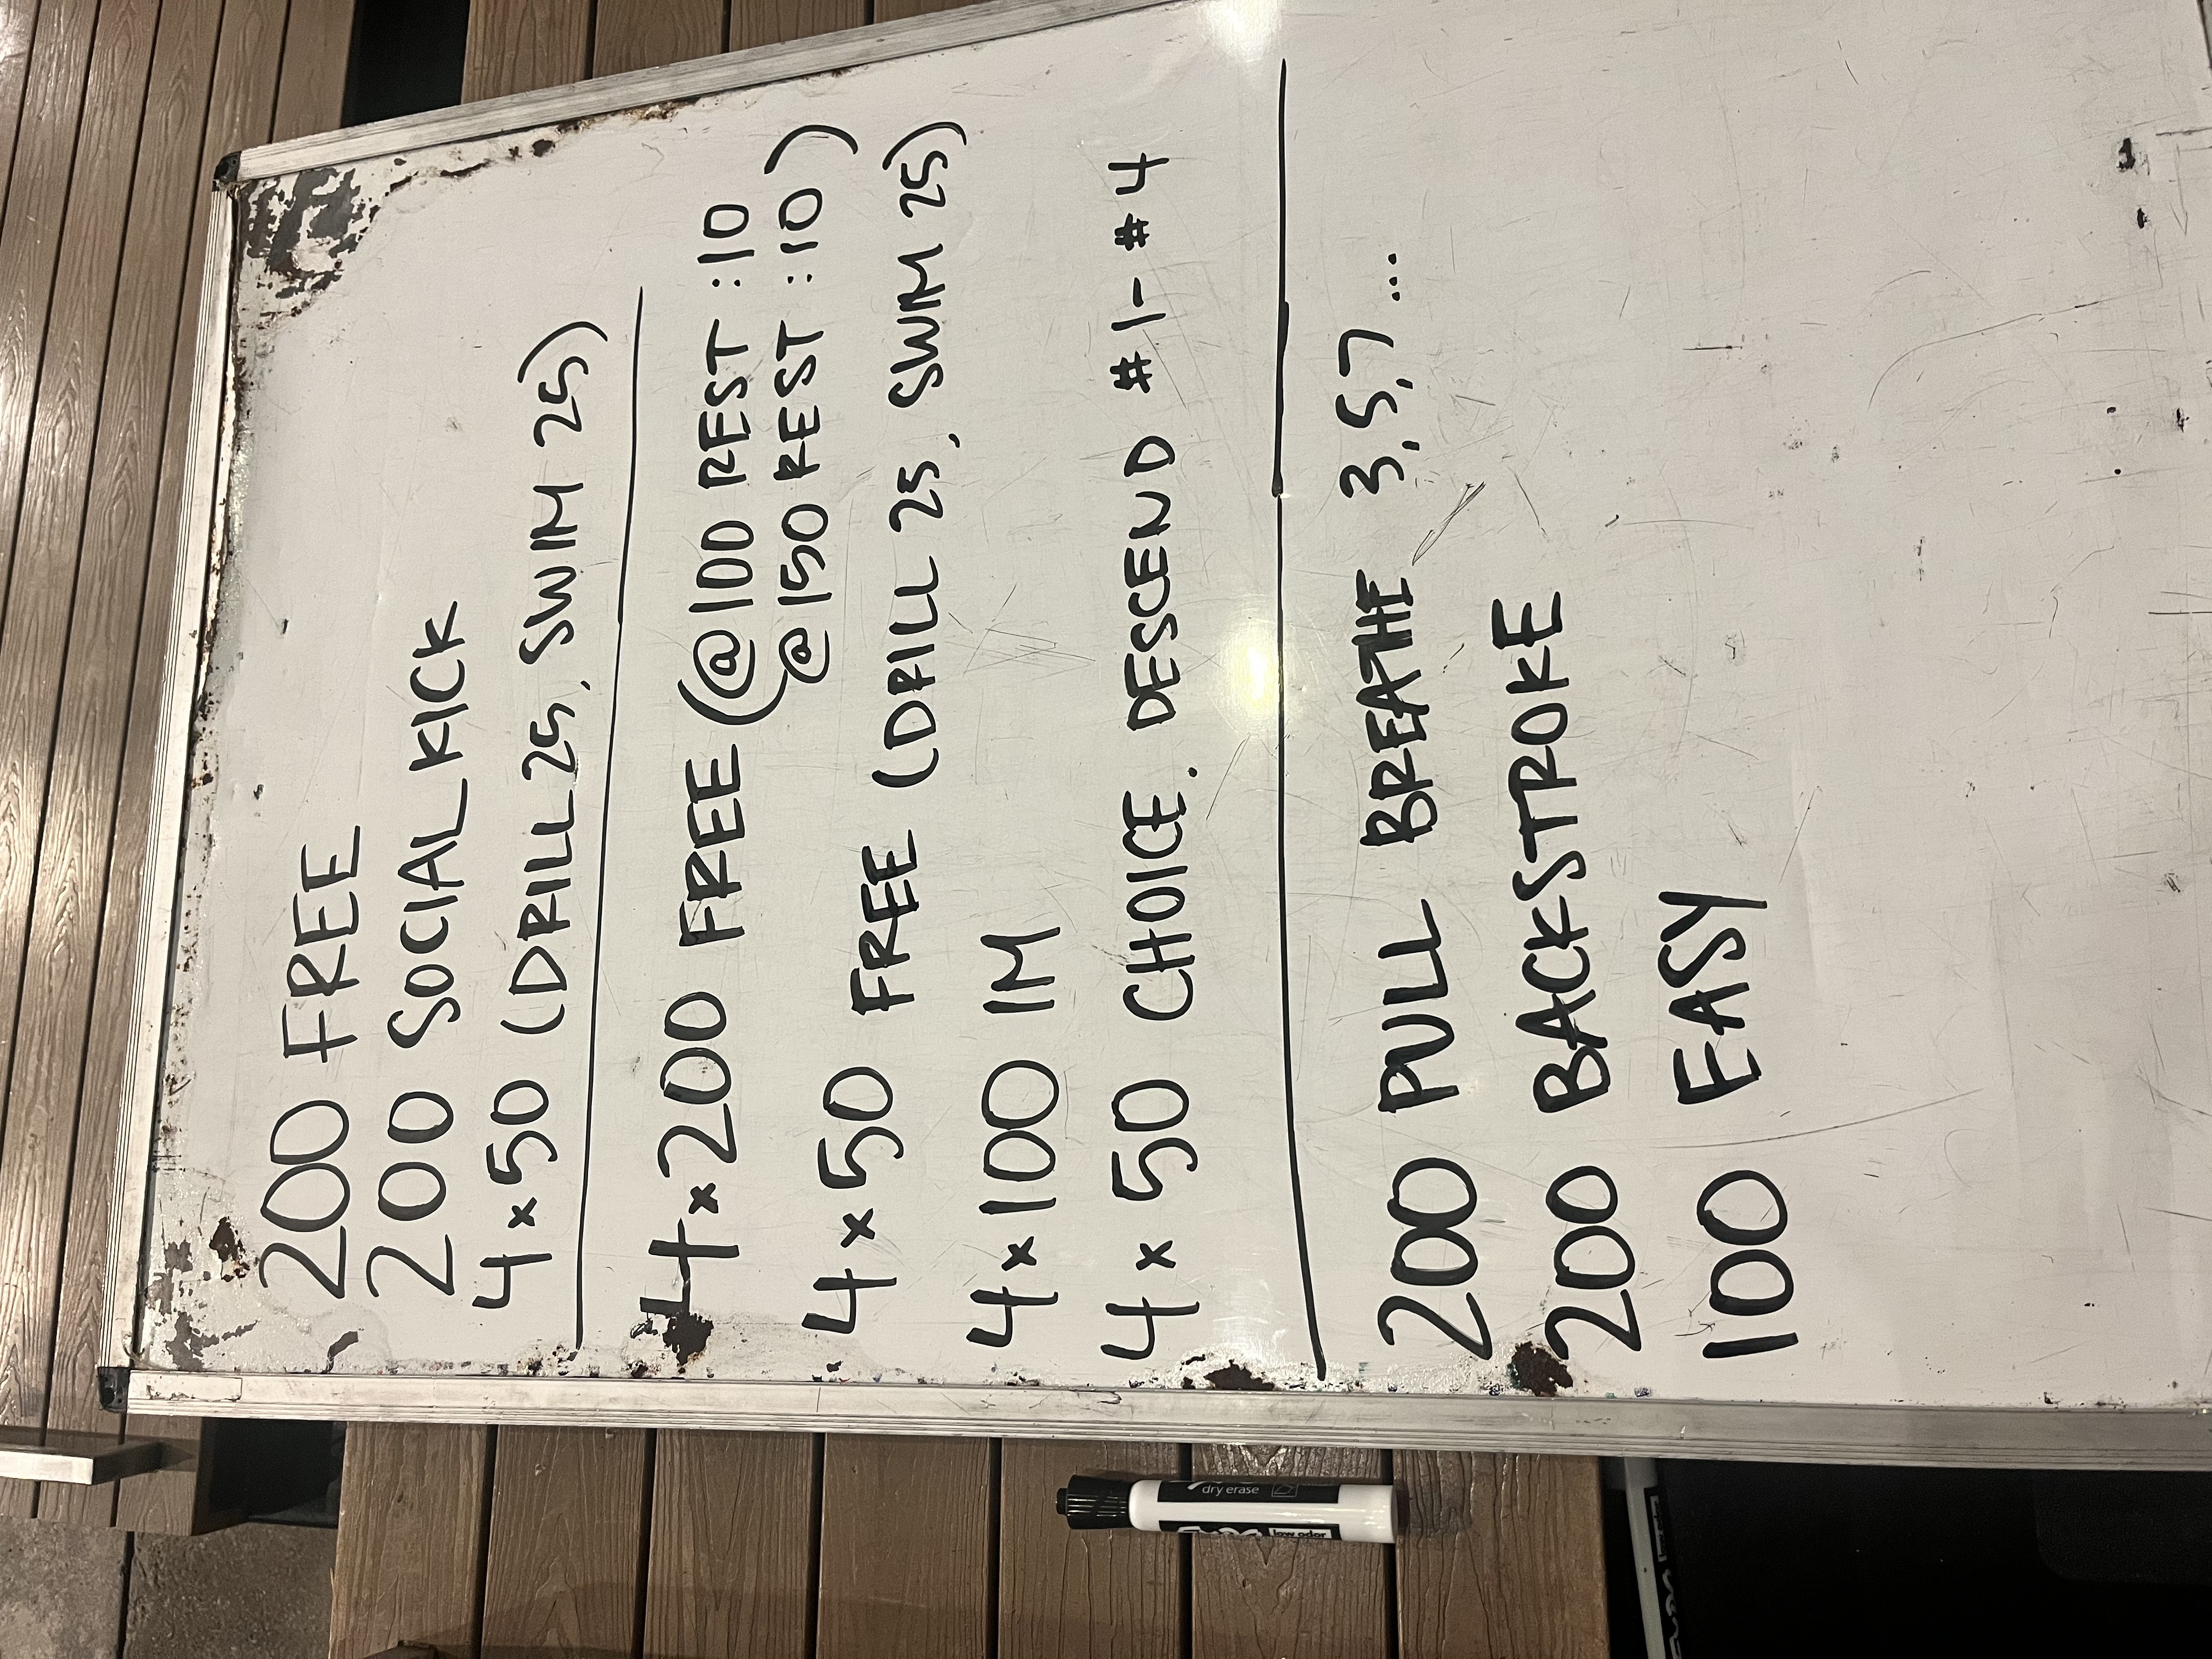 200 FREE
200 SOCIAL KICK
4x50 (DRILL 25, SWIM 25)
4x200 FREE (@100 REST :10
@150 REST :10)
4x50 FREE (DRILL 25, SWIM 25)
4x100 IM
4x50 CHOICE. DESCEND #1-#4
200 PULL BREATHE 3,5,7...
200 BACKSTROKE
100 EASY
dry erase
low odor